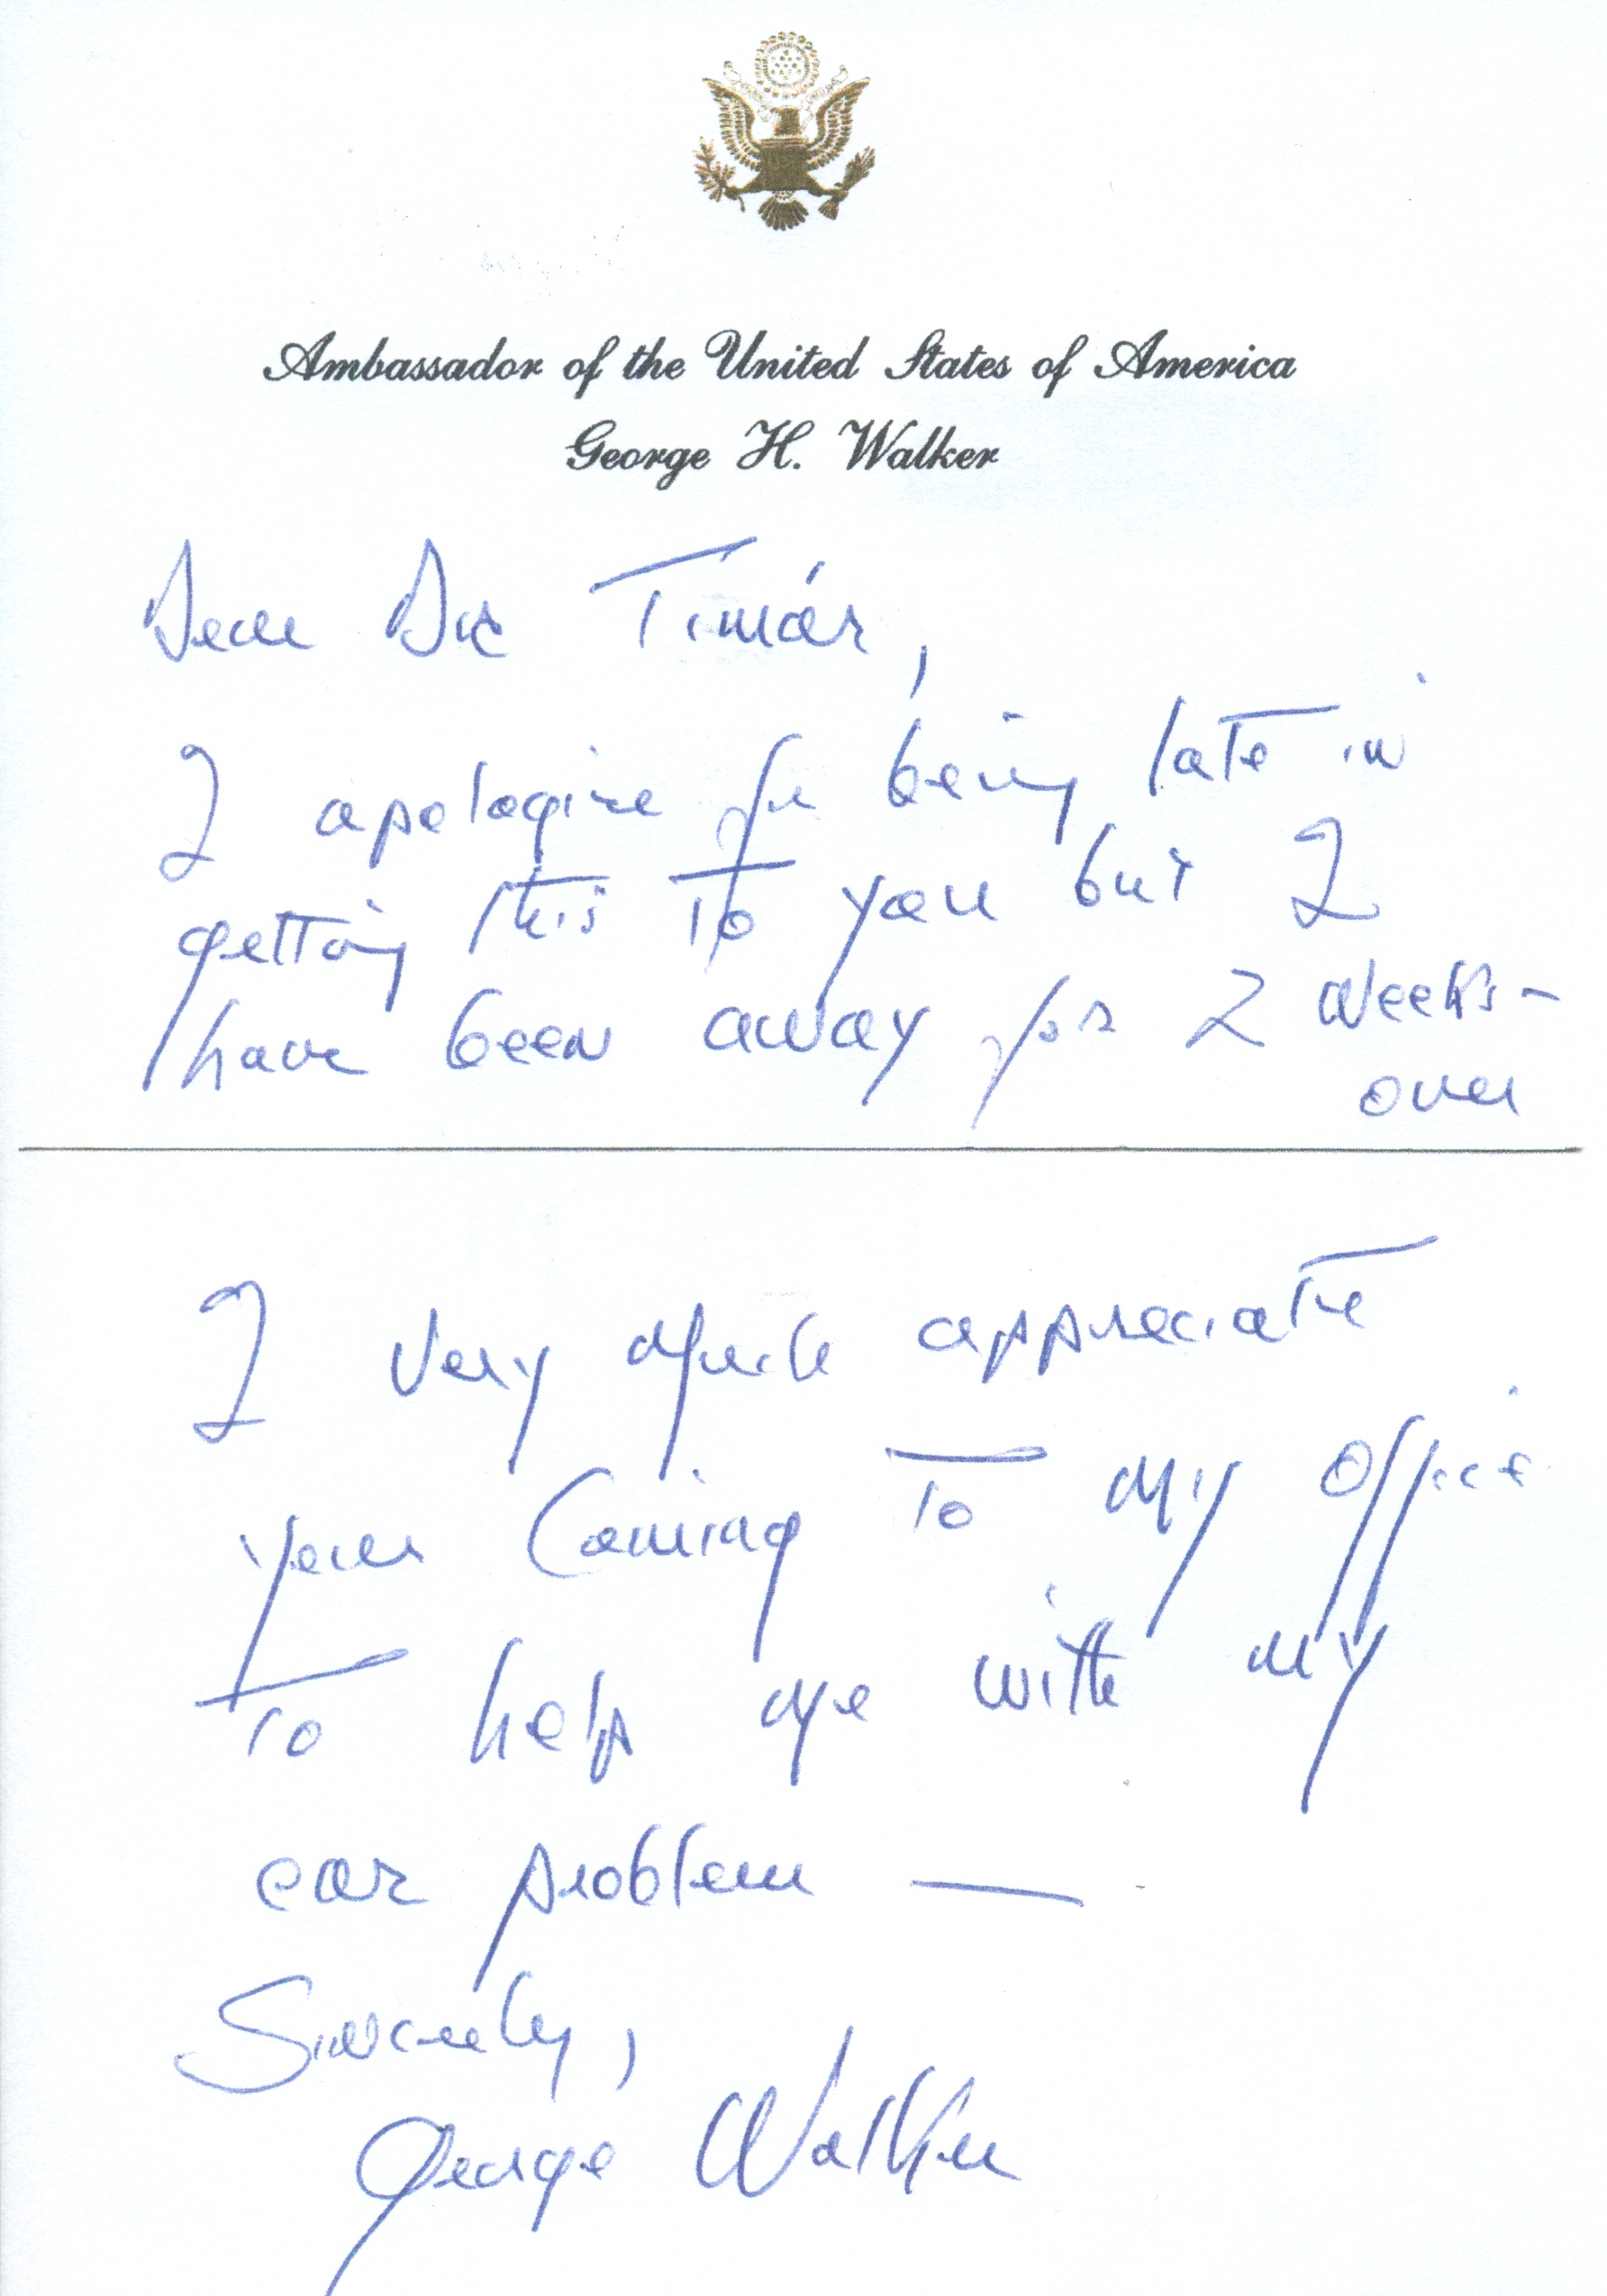 Ambassador of the United States of America
George H. Walker
Dear Dr Timár,
I apologize for being late in
getting this to you but I
have been away for 2 weeks -
over
I very much appreciate
your coming to my office
to help me with my
ear problem —
Sincerely,
George Walker